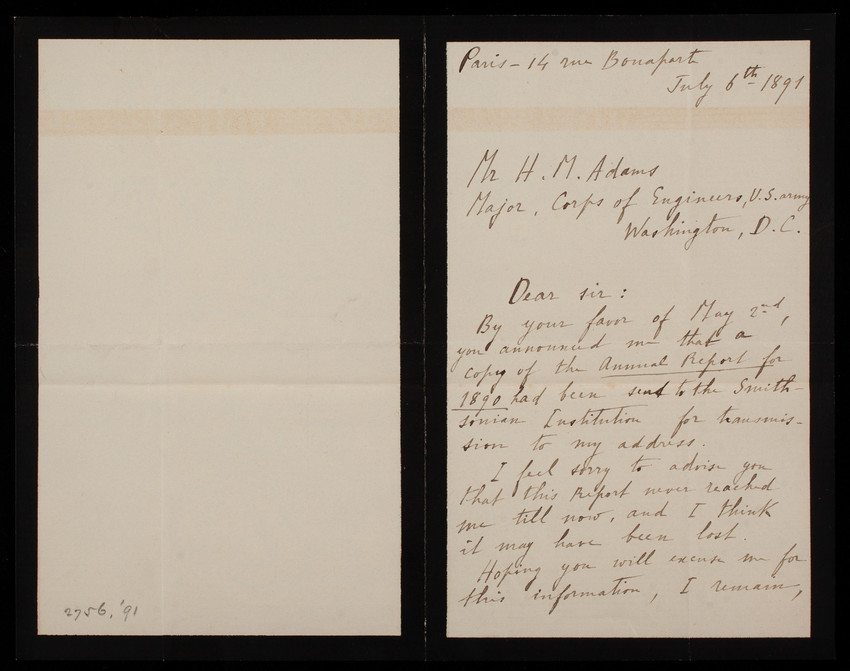 Paris - 14 rue Bonaparte
July 6th 1891
Mr H. M. Adams
Major, Corps of Engineers, U.S. army
Washington, D.C.
Dear sir:
By your favor of May 2nd,
you announced me that a
copy of the Annual Report for
1890 had been sent to the Smith-
sonian Institution for transmis-
sion to my address.
I feel sorry to advise you
that this Report never reached
me till now, and I think
it may have been lost.
Hoping you will excuse me for
this information, I remain,
2756,'91